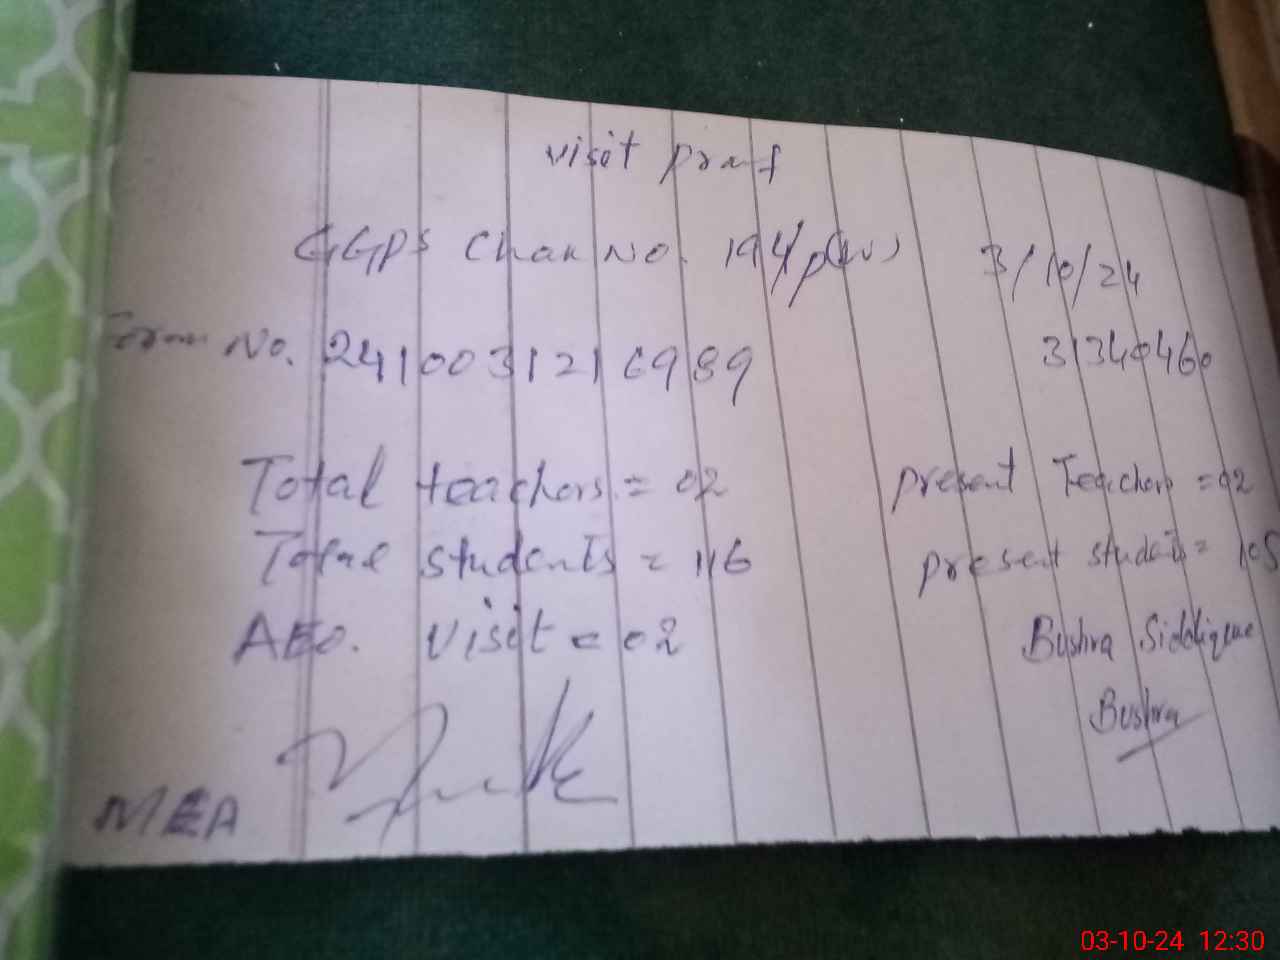 visit proof
GGPS Chak No. 194/P(W) 3/10/24
Form No. 2410031216989 31340460
Total teachers = 02 present Teachers = 02
Total students = 116 present students = 105
AEO. visit = 02 Bushra Siddique
Bushra
MEA
03-10-24 12:30